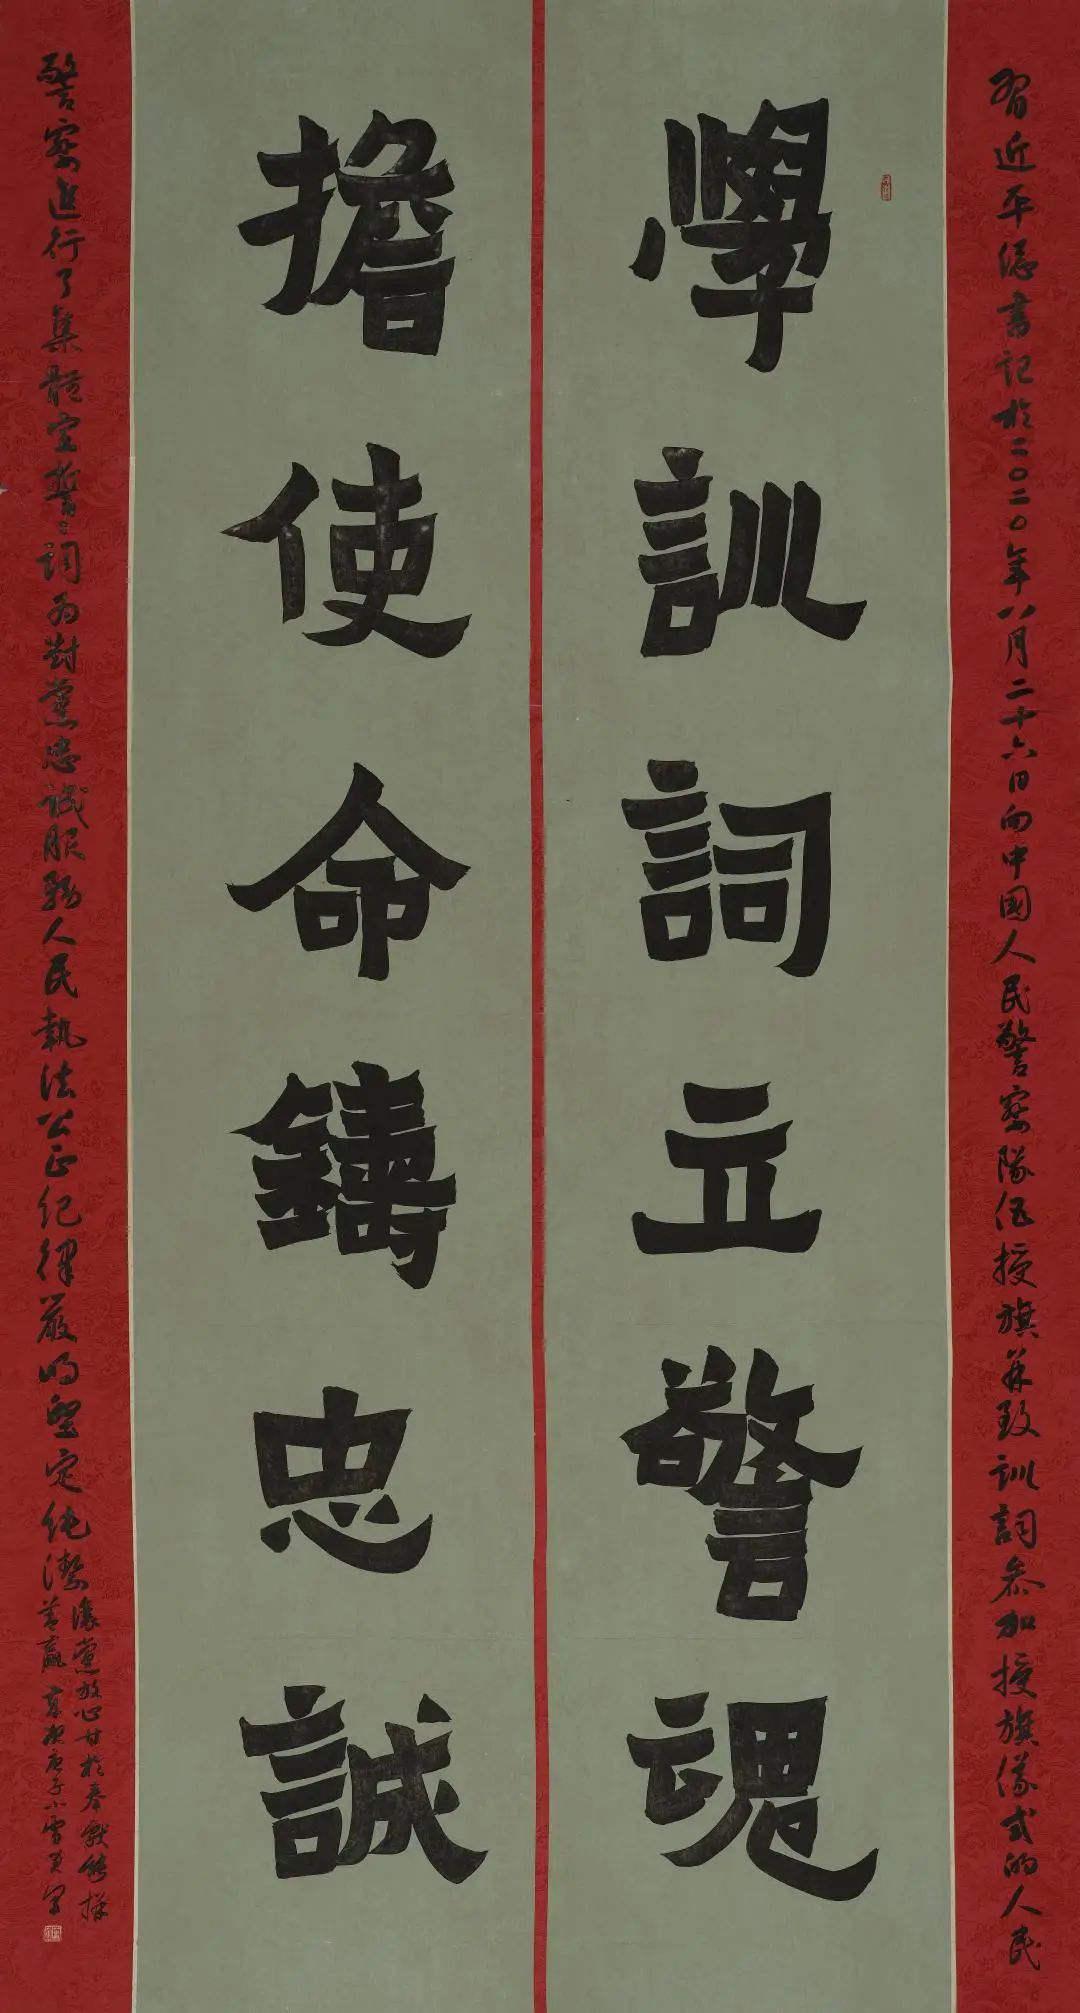 習近平總書記於二〇二〇年八月二十六日向中國人民警察隊伍授旗并致訓詞参加授旗儀式的人民
學訓詞立警魂
擔使命鑄忠誠
警察進行了集體宣誓〻詞为對黨忠誠服務人民執法公正紀律嚴明堅定純潔
讓黨放心甘於奉献能拼
善贏 庚子小雪